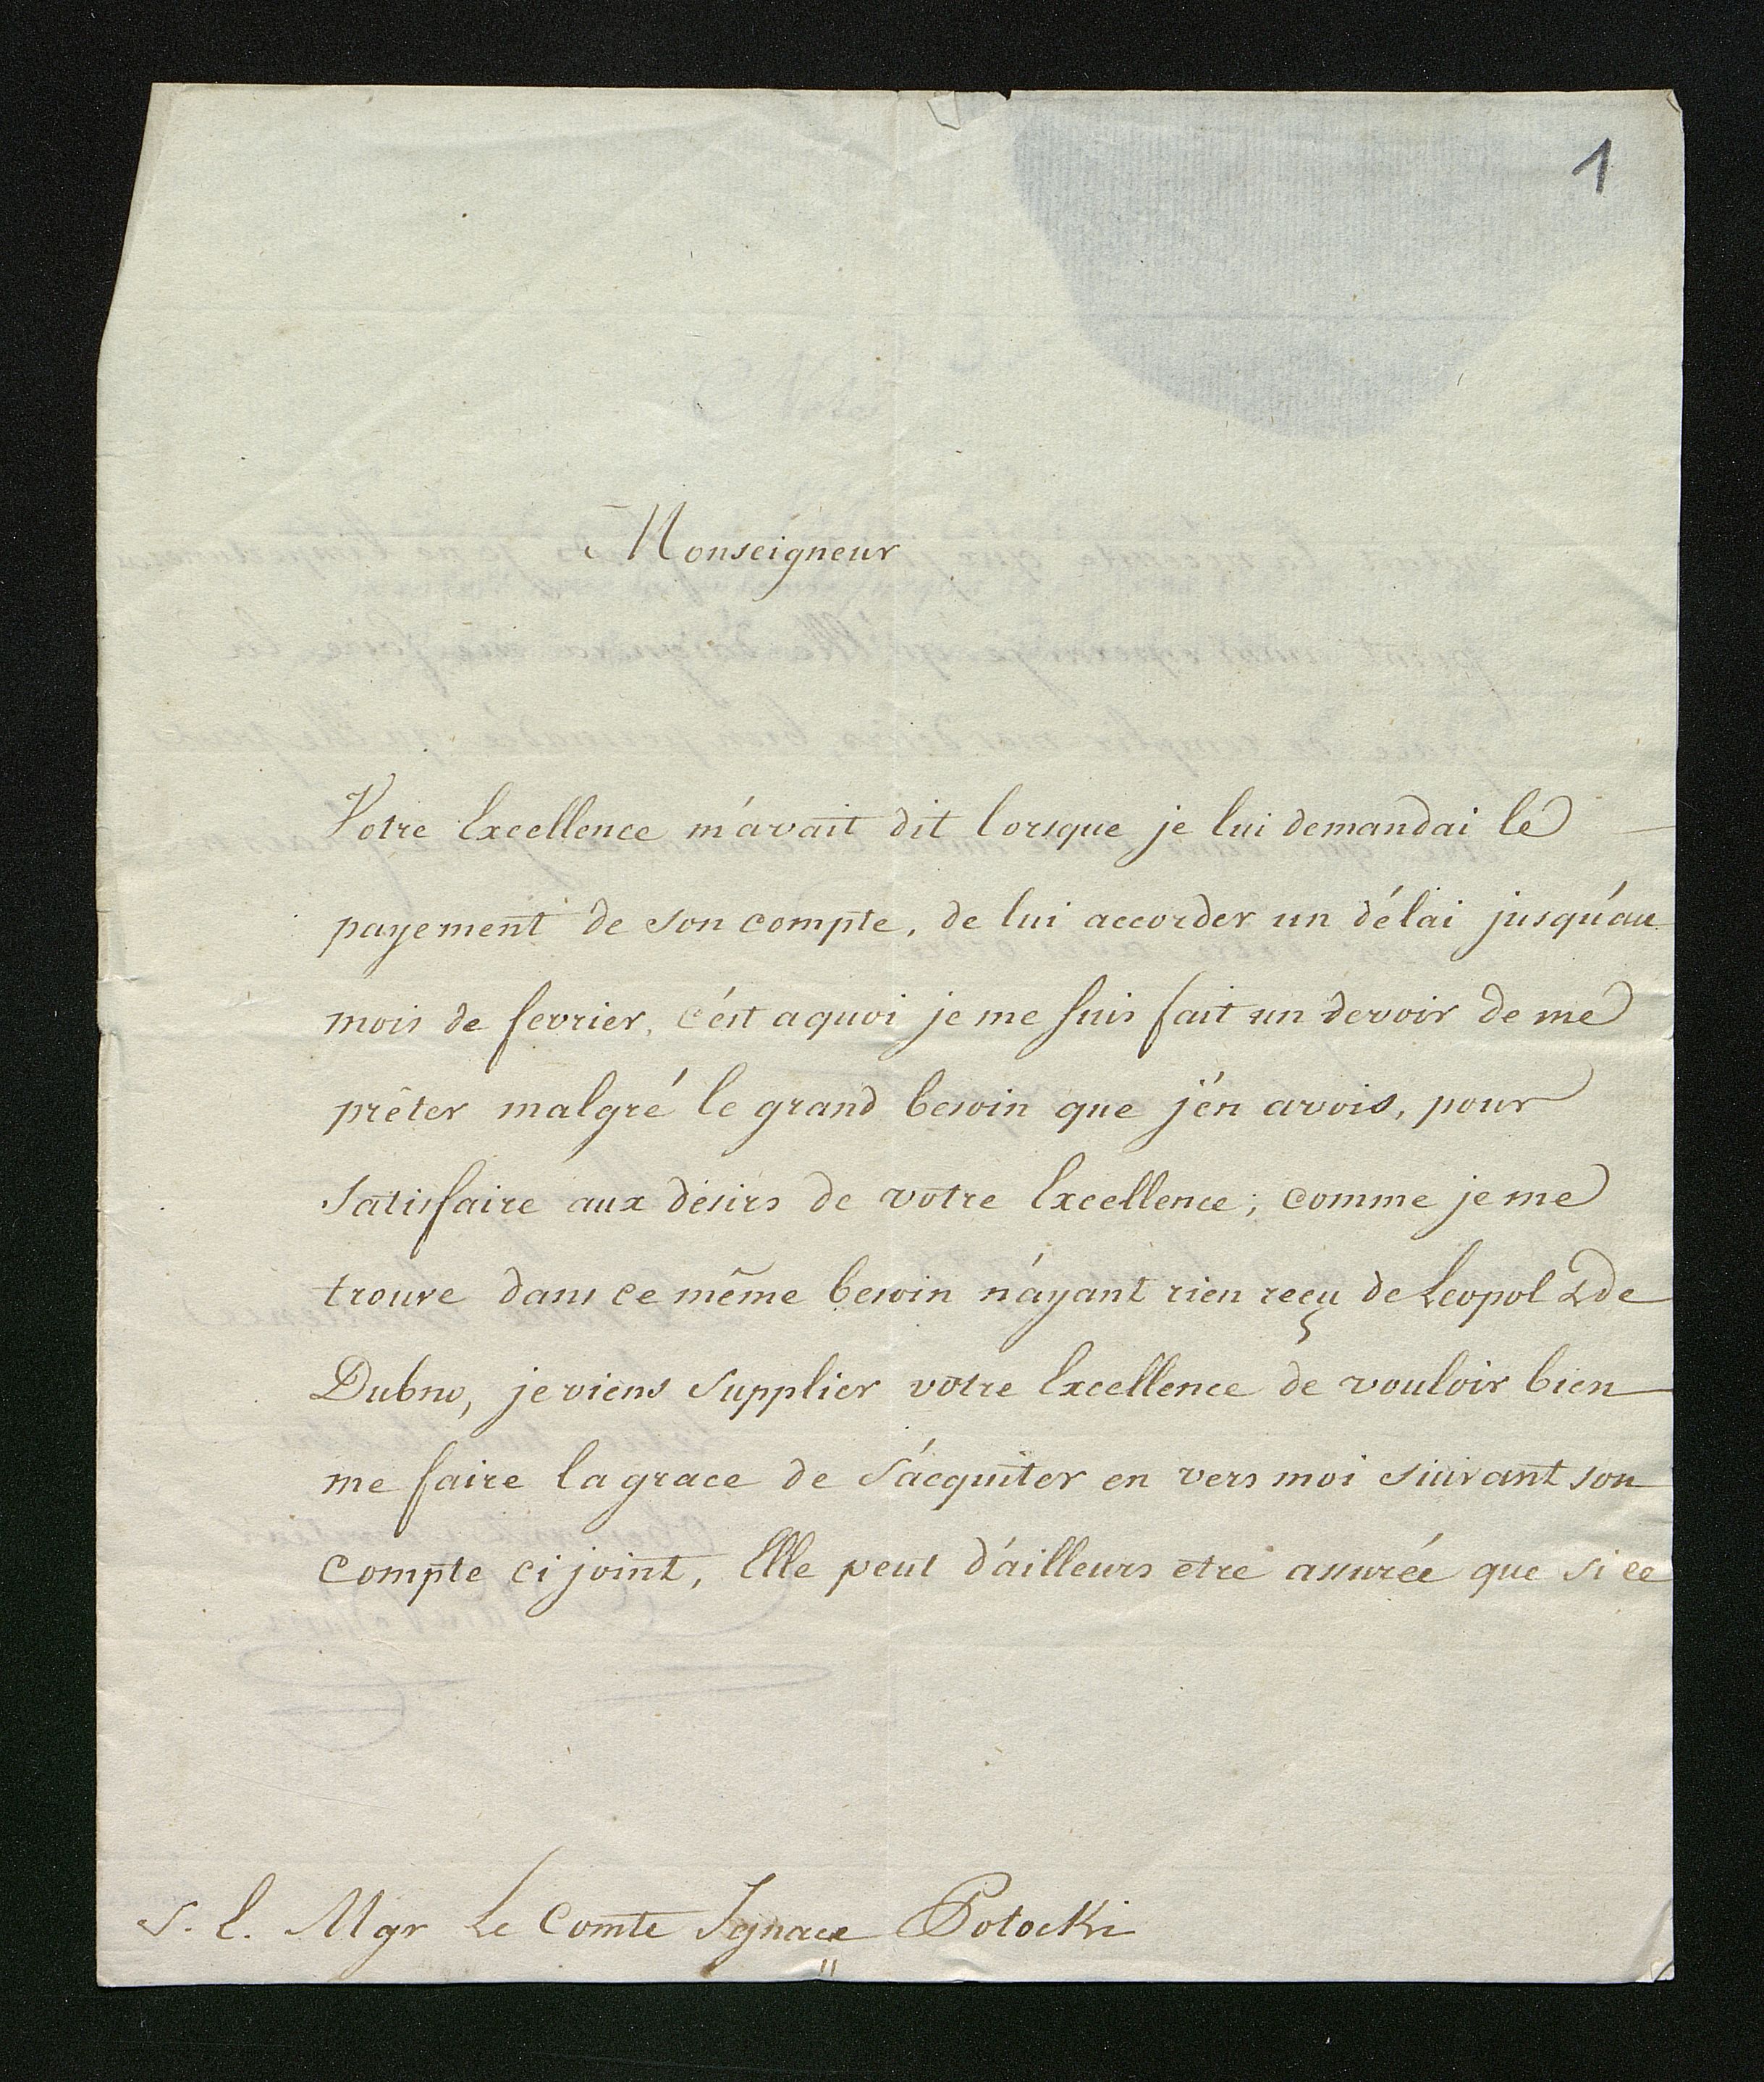 1
Monseigneur
Votre Excellence m'avait dit lorsque je lui demandai le
payement de son compte, de lui accorder un délai jusqu'au
mois de fevrier, c'est aquoi je me suis fait un devoir de me
prêter malgré le grand besoin que j'en avois, pour
satisfaire aux désirs de votre Excellence; comme je me
trouve dans ce même besoin n'ayant rien reçu de Leopold de
Dubno, je viens supplier votre Excellence de vouloir bien
me faire la grace de s'acquiter en vers moi suivant son
compte ci joint, Elle peut d'ailleurs etre assurée que si ce
S. E. Mgr Le Comte Ignace Potocki